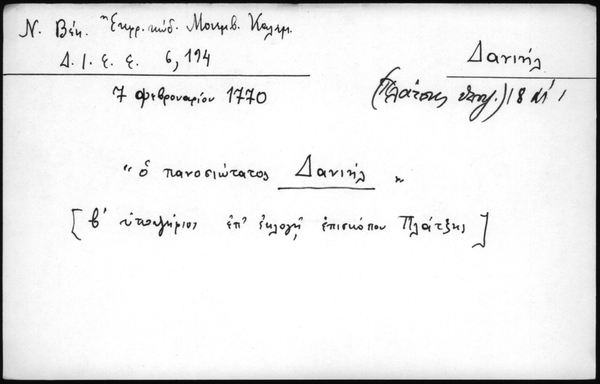 Ν. Βέη. "Ἐκκρ. κώδ. Μονεμβ. Καλαμ.
Δ. Ι. Ε. Ε. 6, 194
Δανιήλ
7 Φεβρουαρίου 1770
(Πλάτσης ὑποψ.) 18 αι'
"ὁ πανοσιώτατος Δανιήλ"
[β' ὑποψήφιος ἐπ' ἐκλογῇ ἐπισκόπου Πλάτζης]